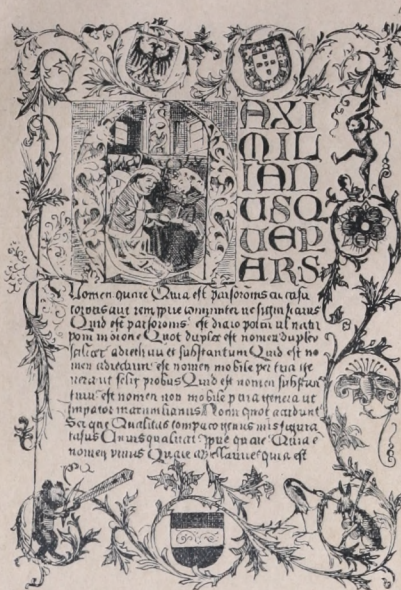 MAXI
MIL
IAN
USQ
UEP
ARS
Nomen quare Quia est pars oronis cu casu
corpus aut rem proprie comuniter ve significans
Quid est pars oronis est dictio
poni in orone Quot duplex est nomen duplex
scilicet adiectivu et substantivum Quid est no
men adiectivum est nomen mobile per tria ge
nera ut felix probus Quid est nomen substan
tivu est nomen non mobile p tria genera ut
Impator maximilianus Nomi quot accidunt
Sex que Qualitas compacio genus figura
casus Cuius qualitat quare Quia e
nomen Quare quia est